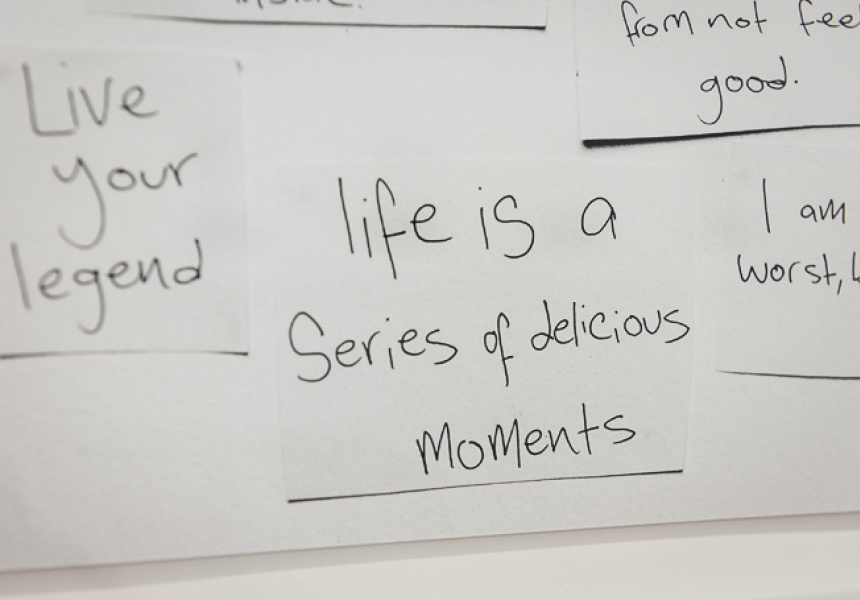 from not
good.
Live
your
legend
life is a
Series of delicious
Moments
I am
worst,